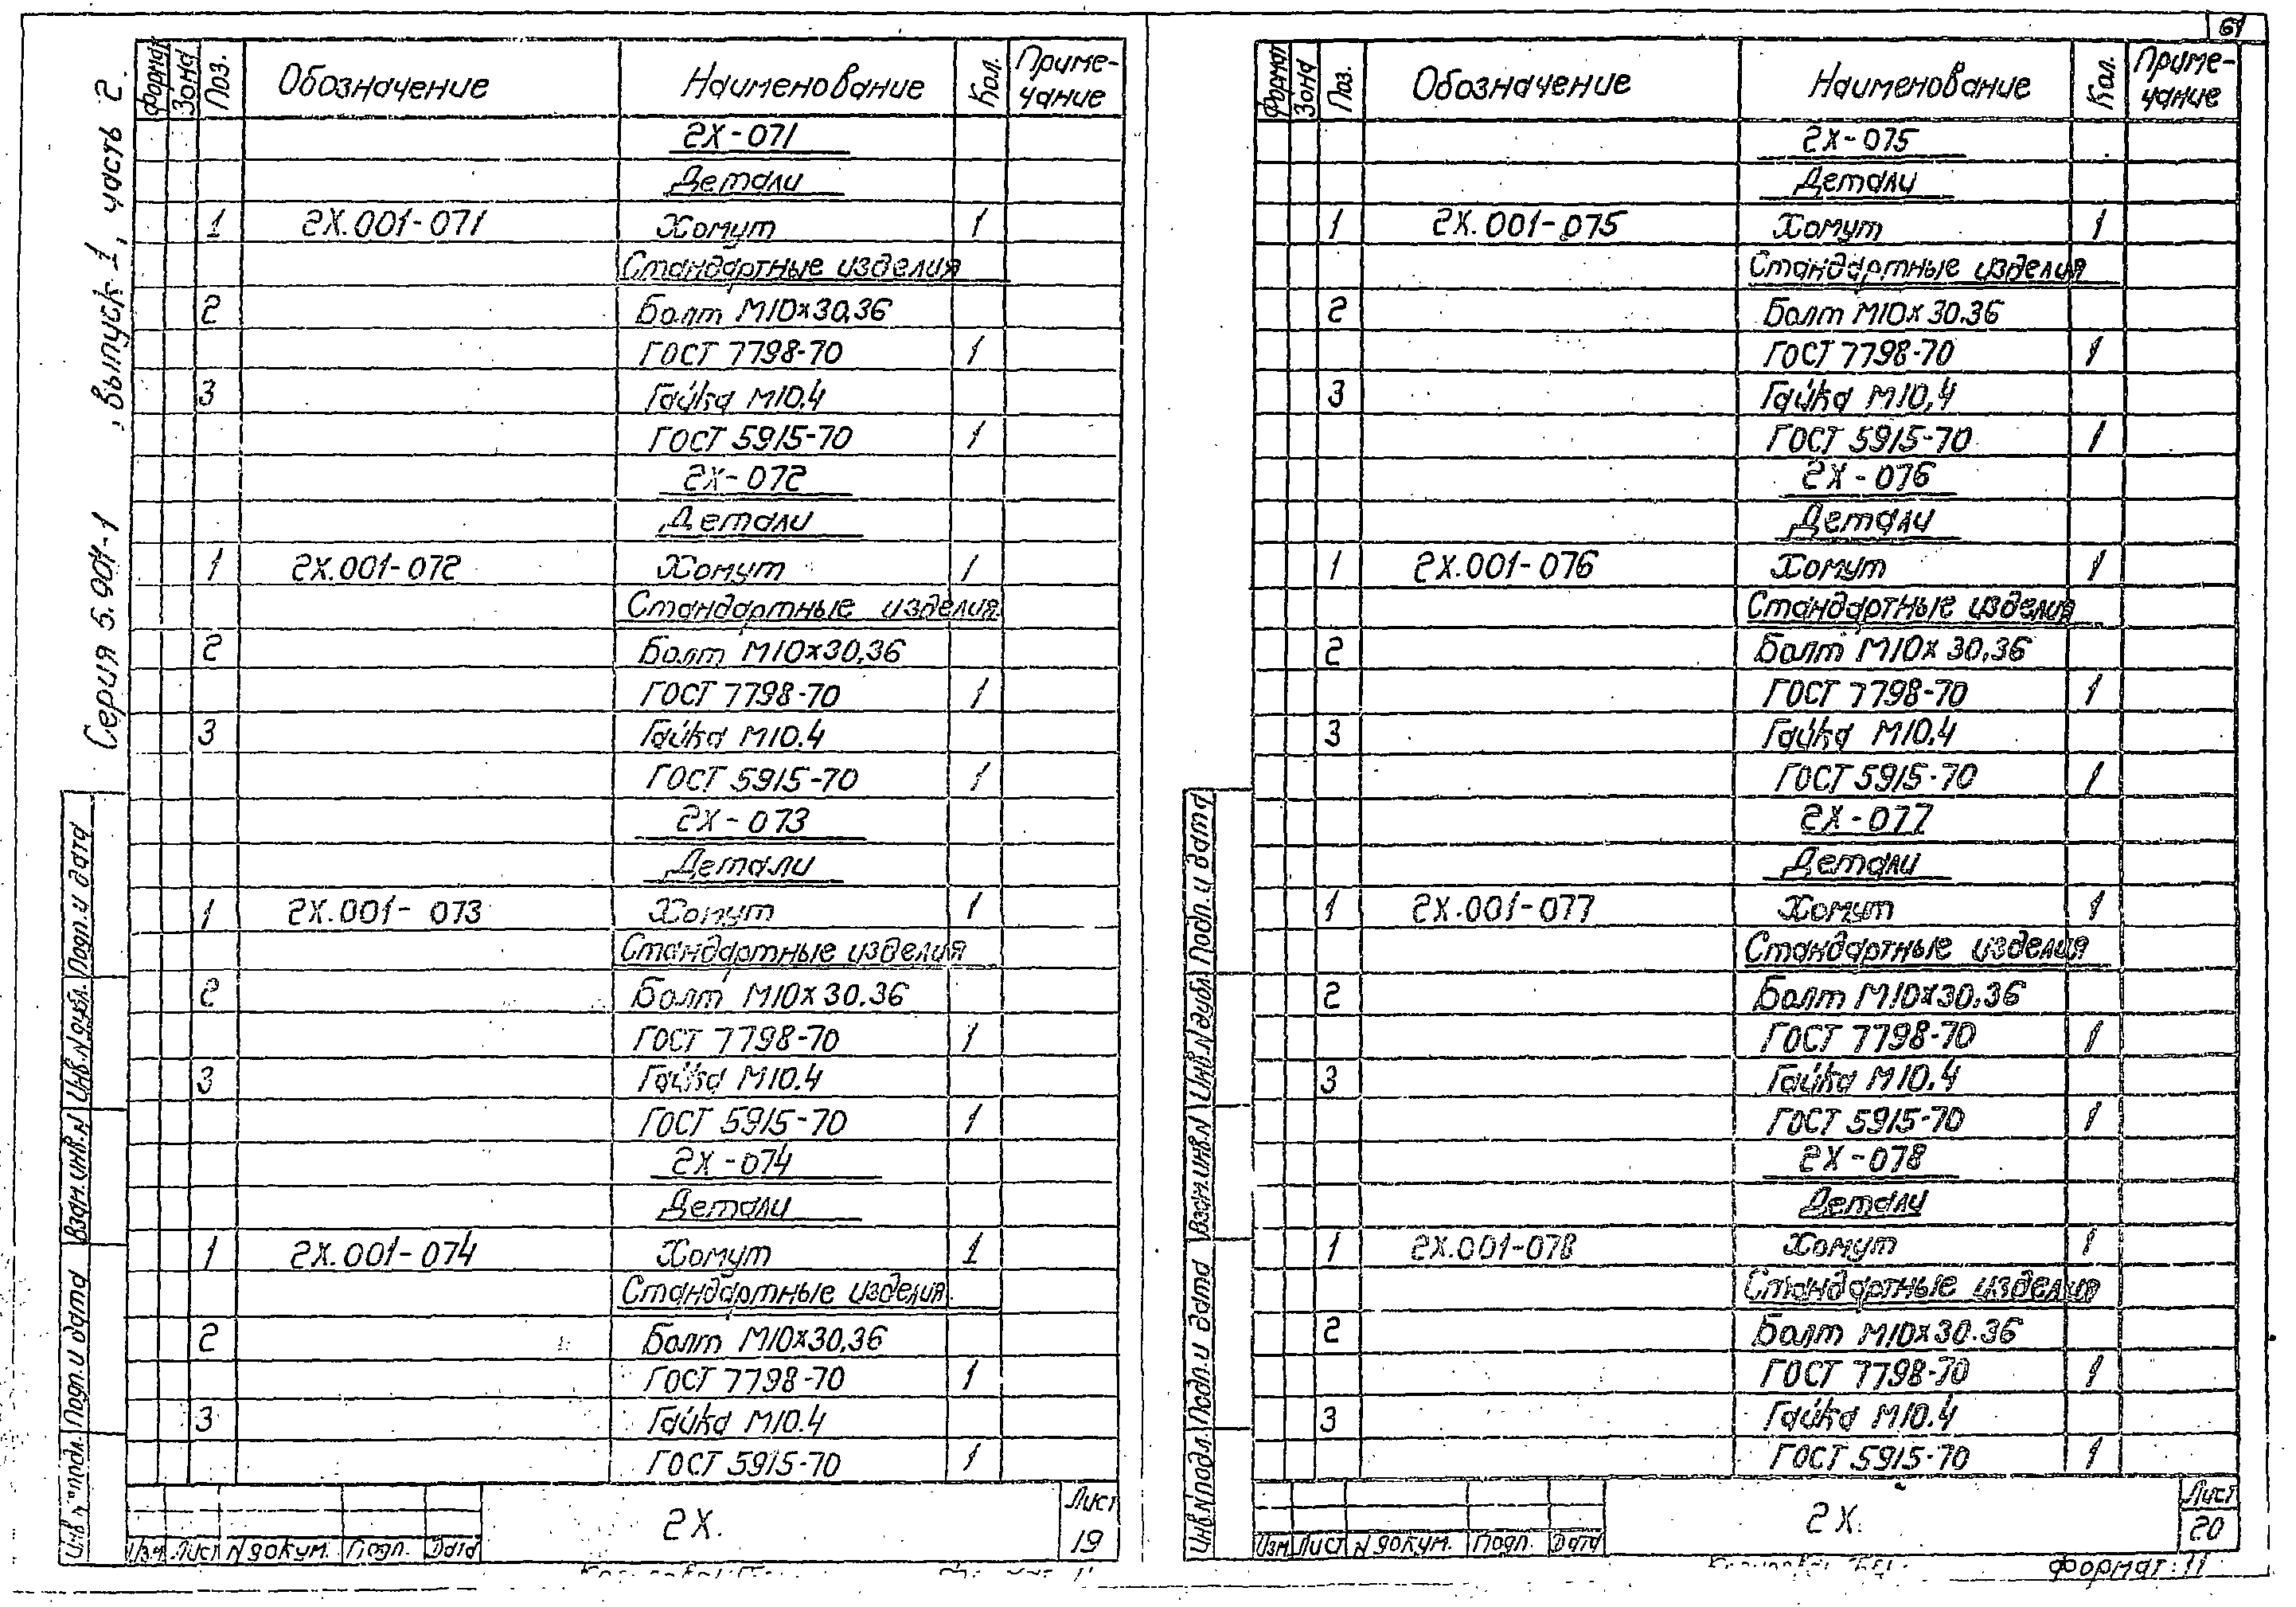 61
Серия 5.901-1 , выпуск 1, часть 2.
Формат Зона Поз. Обозначение Наименование Кол. Приме-
чание
2Х-071
Детали
1 2Х.001-071 Хомут 1
Стандартные изделия
2 Болт М10х30.36
ГОСТ 7798-70 1
3 Гайка М10.4
ГОСТ 5915-70 1
2Х-072
Детали
1 2Х.001-072 Хомут 1
Стандартные изделия.
2 Болт М10х30.36
ГОСТ 7798-70 1
3 Гайка М10.4
ГОСТ 5915-70 1
2Х-073
Детали
1 2Х.001-073 Хомут 1
Стандартные изделия
2 Болт М10х30.36
ГОСТ 7798-70 1
3 Гайка М10.4
ГОСТ 5915-70 1
2Х-074
Детали
1 2Х.001-074 Хомут 1
Стандартные изделия.
2 Болт М10х30.36
ГОСТ 7798-70 1
3 Гайка М10.4
ГОСТ 5915-70 1
Инв.N подл. Подп. и дата Взам.инв.N Инв.N дубл. Подп. и дата
Изм Лист N докум. Подп. Дата
2Х.
Лист
19
Формат Зона Поз. Обозначение Наименование Кол. Приме-
чание
2Х-075
Детали
1 2Х.001-075 Хомут 1
Стандартные изделия
2 Болт М10х30.36
ГОСТ 7798-70 1
3 Гайка М10.4
ГОСТ 5915-70 1
2Х-076
Детали
1 2Х.001-076 Хомут 1
Стандартные изделия
2 Болт М10х30.36
ГОСТ 7798-70 1
3 Гайка М10.4
ГОСТ 5915-70 1
2Х-077
Детали
1 2Х.001-077 Хомут 1
Стандартные изделия
2 Болт М10х30.36
ГОСТ 7798-70 1
3 Гайка М10.4
ГОСТ 5915-70 1
2Х-078
Детали
1 2Х.001-078 Хомут 1
Стандартные изделия
2 Болт М10х30.36
ГОСТ 7798-70 1
3 Гайка М10.4
ГОСТ 5915-70 1
Инв.N подл. Подп. и дата Взам.инв.N Инв.N дубл Подп. и дата
Изм Лист N докум. Подп. Дата
2Х.
Лист
20
Формат: 11